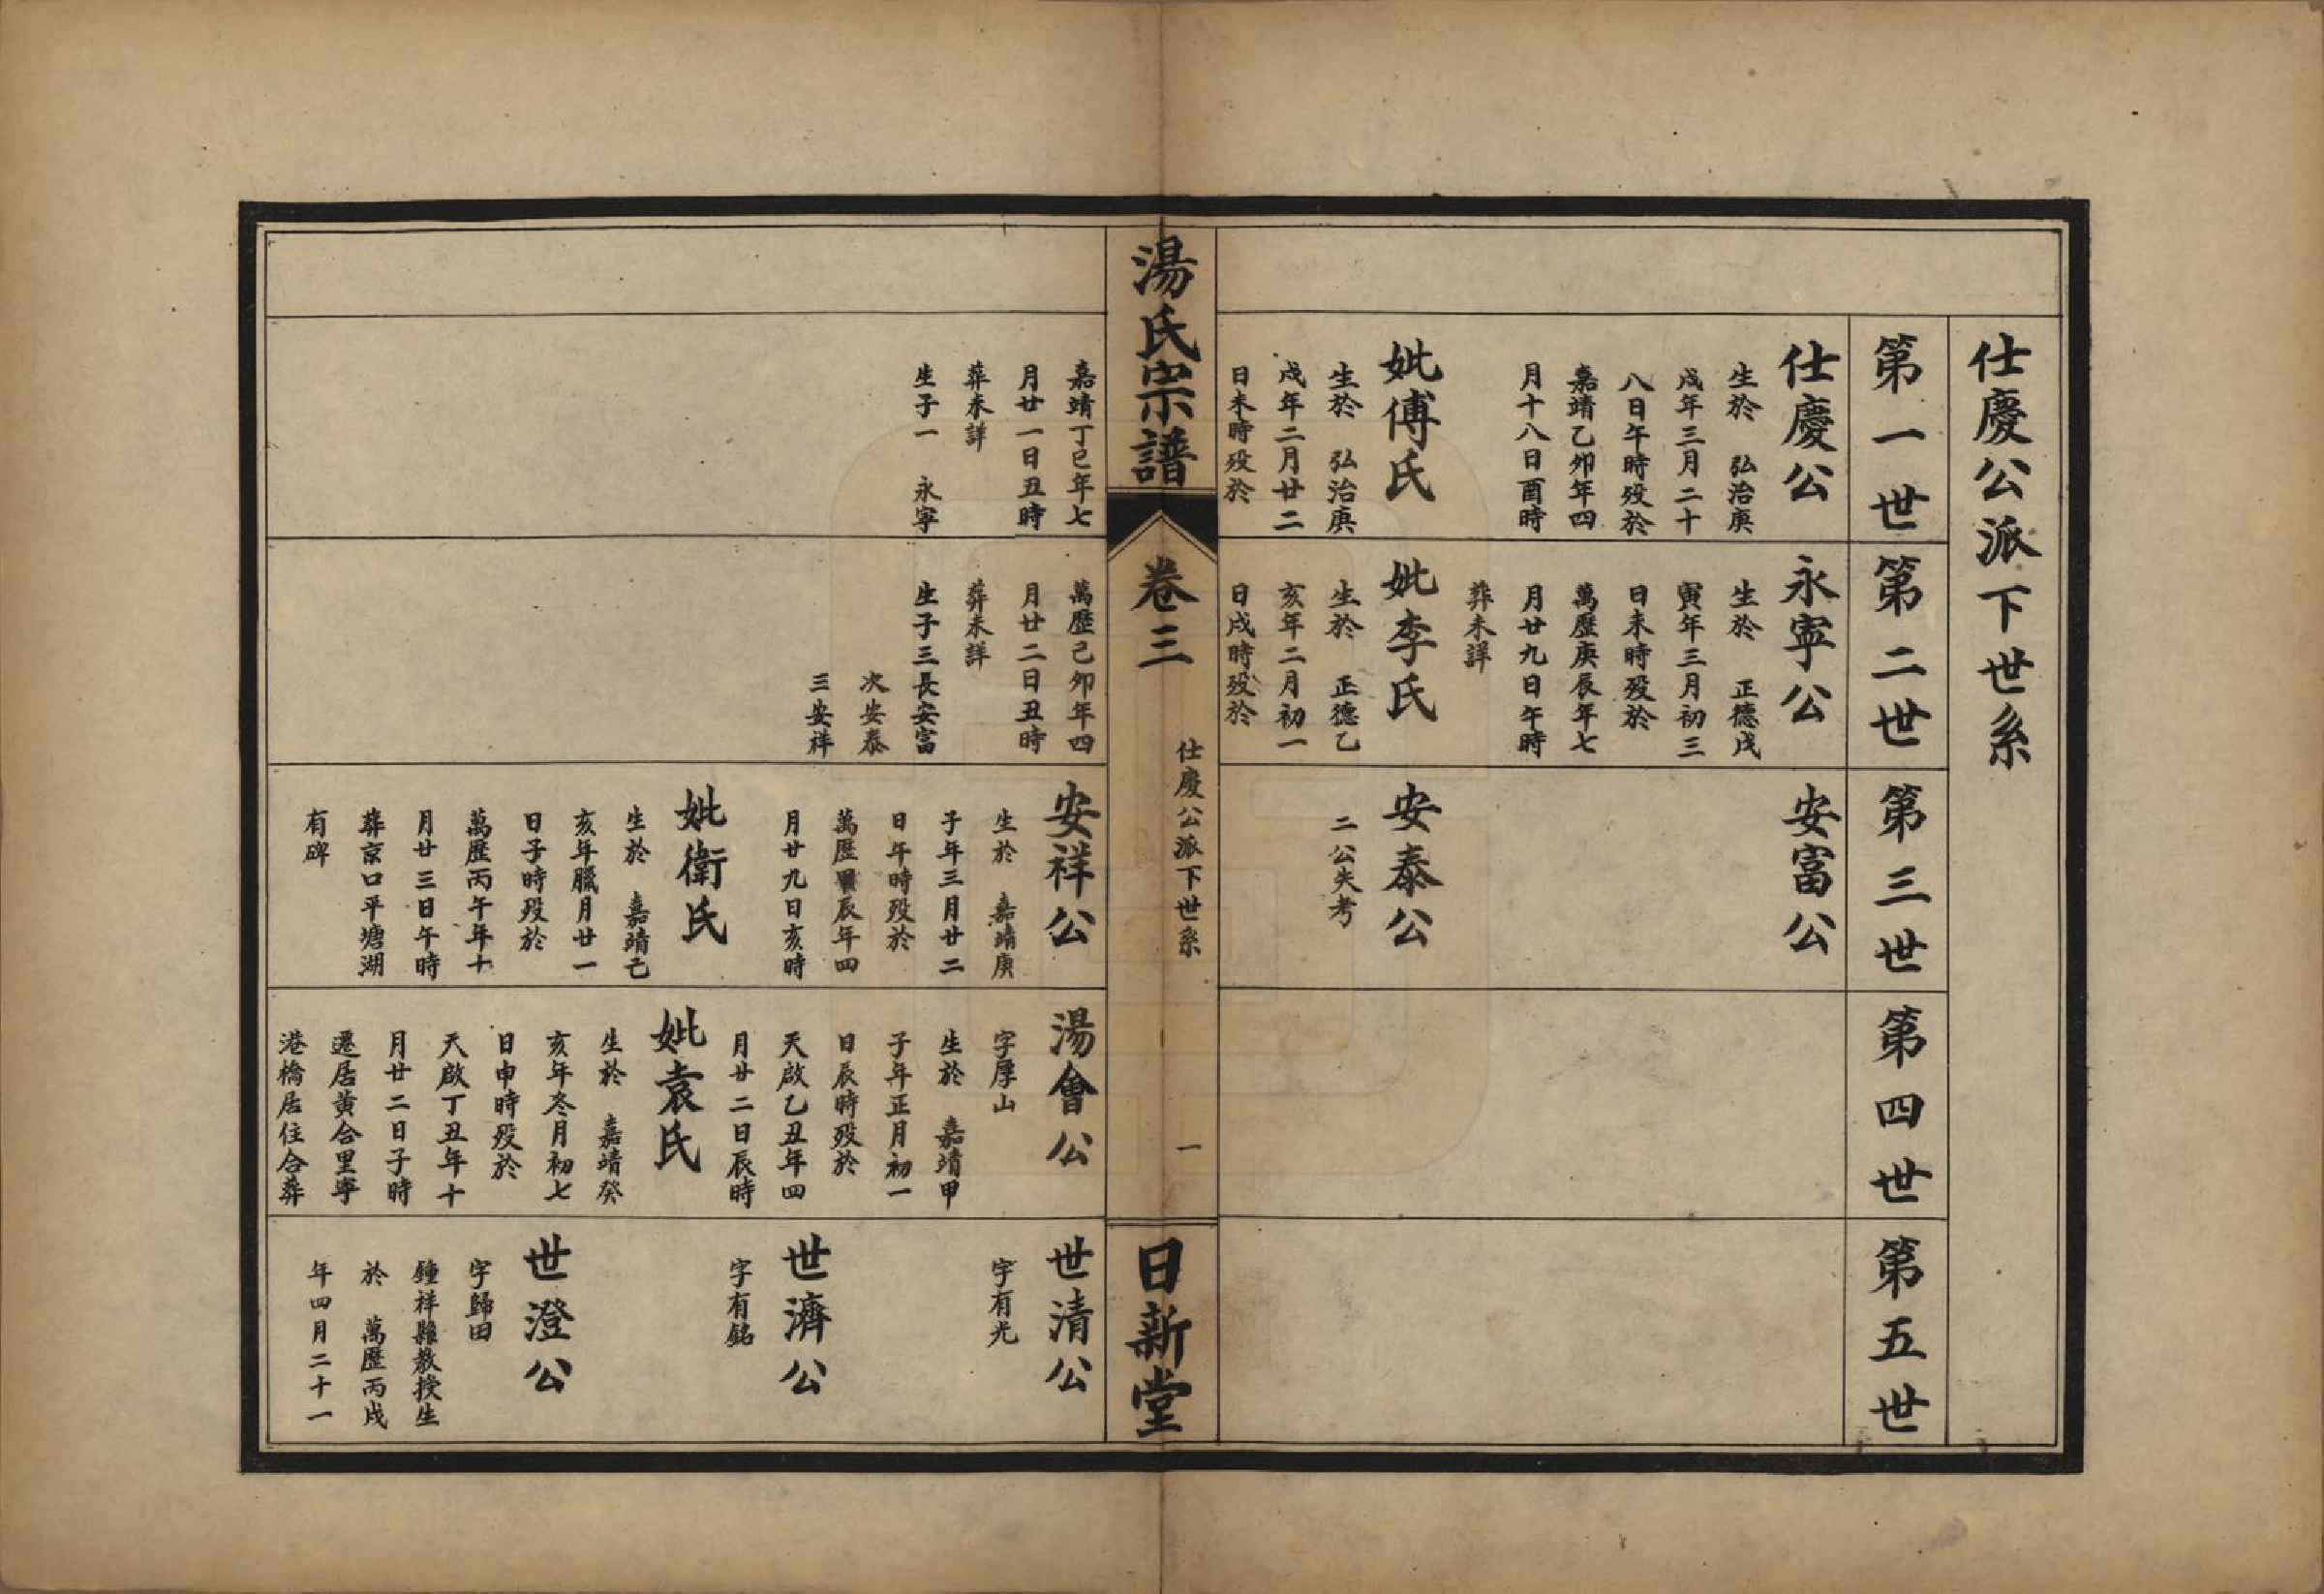 仕慶公派下世系
第一世
第二世
第三世
第四世
第五世
仕慶公
生於　弘治庚
戌年三月二十
八日午時歿於
嘉靖乙卯年四
月十八日酉時
妣傅氏
生於　弘治庚
戌年二月廿二
日未時歿於
永寧公
生於　正德戊
寅年三月初三
日未時歿於
萬歷庚辰年七
月廿九日午時
葬未詳
妣李氏
生於　正德乙
亥年二月初一
日戌時歿於
安富公
安泰公
二公失考
湯氏宗譜
卷三
仕慶公派下世系
一
日新堂
嘉靖丁巳年七
月廿一日丑時
葬未詳
生子一　永寧
萬歷己卯年四
月廿二日丑時
葬未詳
生子三長安富
次安泰
三安祥
安祥公
生於　嘉靖庚
子年三月廿二
日午時歿於
萬歷甲辰年四
月廿九日亥時
妣衛氏
生於　嘉靖己
亥年臘月廿一
日子時歿於
萬歷丙午年十
月廿三日午時
葬京口平塘湖
有碑
湯會公
字厚山
生於　嘉靖甲
子年正月初一
日辰時歿於
天啟乙丑年四
月廿二日辰時
妣袁氏
生於　嘉靖癸
亥年冬月初七
日申時歿於
天啟丁丑年十
月廿二日子時
遷居黄合里寧
港橋居住合葬
世清公
字有光
世濟公
字有銘
世澄公
字歸田
鍾祥縣教授生
於　萬歷丙戌
年四月二十一